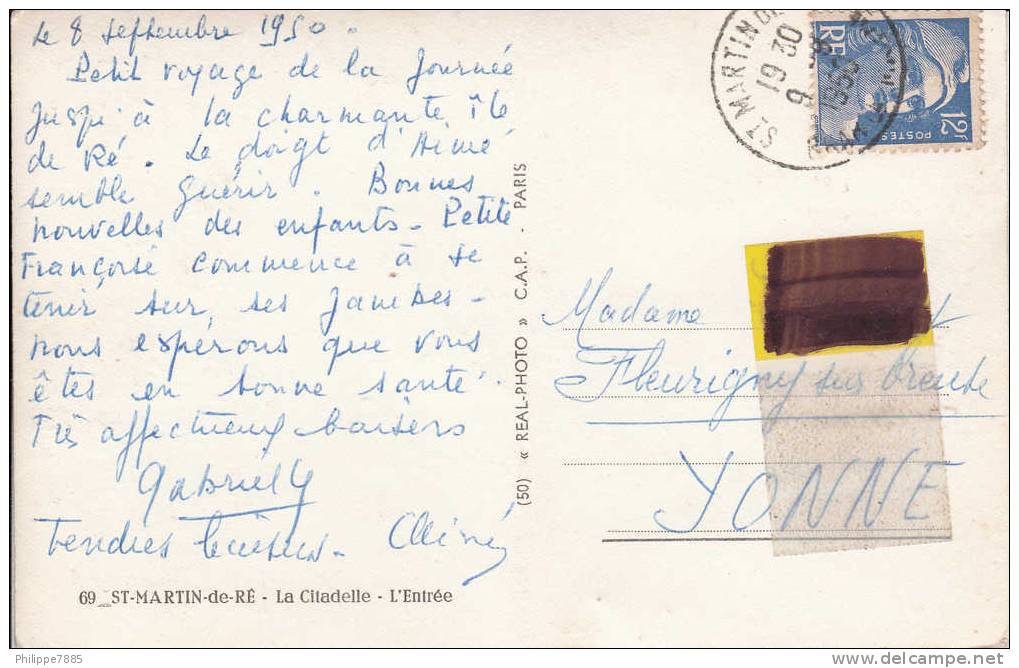 Le 8 septembre 1950.
Petit voyage de la journée
jusqu'à la charmante île
de Ré. Le doigt d'Aimé
semble guérir. Bonnes
nouvelles des enfants. Petite
Françoise commence à se
tenir sur ses jambes -
nous espérons que vous
êtes en bonne santé.
Très affectueux baisers
Gabrielle
Tendres baisers. Aimé
69 ST-MARTIN-de-RÉ - La Citadelle - L'Entrée
(50) « REAL-PHOTO » C.A.P. - PARIS
ST MARTIN DE
19 30
9
POSTES
12F
RF
Madame
Fleurigny sur Oreuse
YONNE
Philippe7885